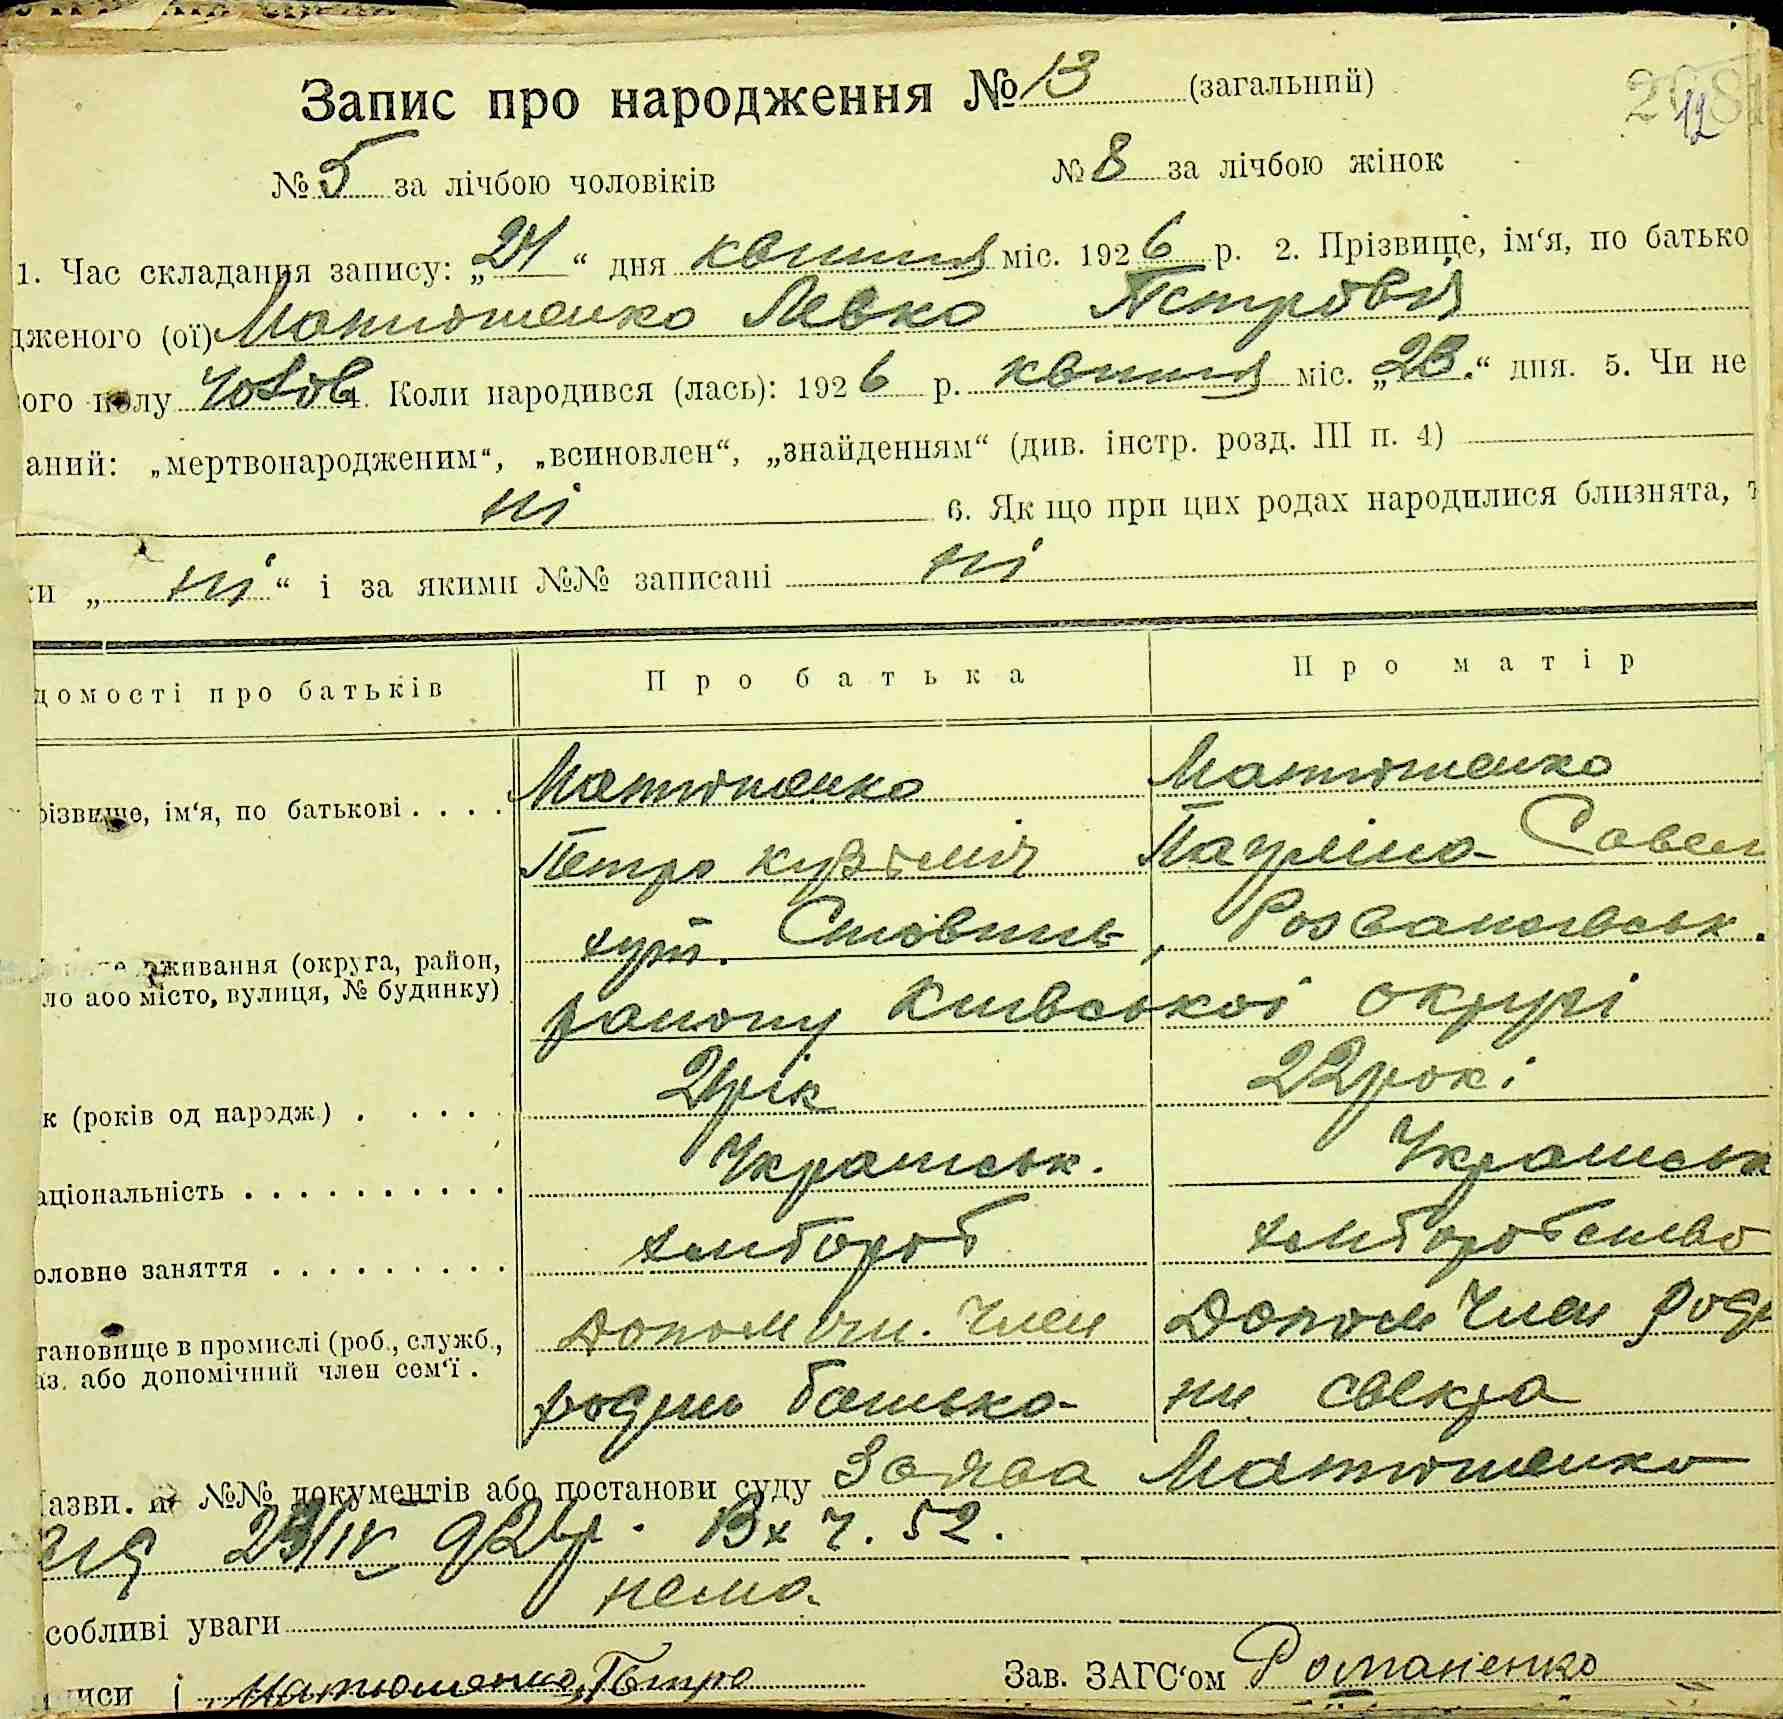 Запис про народження № 13 (загальний)
№ 5 за лічбою чоловіків № 8 за лічбою жінок
1. Час складання запису: „24“ дня квитня міс. 1926 р. 2. Прізвище, ім‘я, по батько
дженого (ої) Матюшенко Левко Петровіч
ого полу чолов 4. Коли народився (лась): 1926 р. квитня міс. „23.“ дня. 5. Чи не
аний: „мертвонародженим“, „всиновлен“, „знайденням“ (див. інстр. розд. III п. 4)
ні 6. Як що при цих родах народилися близнята, т
ки „ні“ і за якими №№ записані ні
домості про батьків Про батька Про матір
різвище, ім‘я, по батькові . . . . Матюшенко Матюшенко
Петро Кузьміч Пауліна Савел
хут. Стовпин, Розважівськ.
живання (округа, район,
ло або місто, вулиця, № будинку)
району Київської округі
к (років од народж.) . . . . . 21 рік 22 рокі
аціональність . . . . . . . . . . Українськ. Українськ
оловне заняття . . . . . . . . . хлібороб хліборобство
тановище в промислі (роб., служб., Допоміч. член Допом член роди
аз. або допомічний член сем‘ї . родин батька ни свекра
азви. і №№ документів або постанови суду Заява Матюшенко
23/IV 926 р. Вх ч. 52.
собливі уваги нема.
писи і Матюшенко Петро Зав. ЗАГС‘ом Романенко